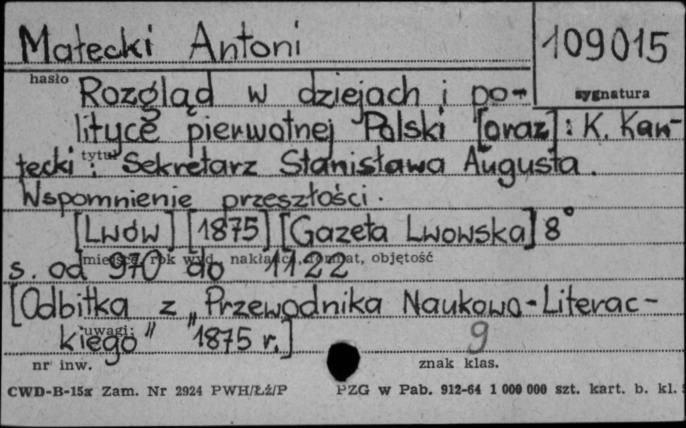 Małecki Antoni
109015
hasło
sygnatura
Rozgląd w dziejach i po-
lityce pierwotnej Polski [oraz]: K. Kan-
tecki: Sekretarz Stanisława Augusta.
tytuł
Wspomnienie przeszłości.
[Lwów] [1875] [Gazeta Lwowska] 8°
miejsce, rok wyd., nakładca, format, objętość
s. od 970 do 1122
[Odbitka z „Przewodnika Naukowo-Literac-
kiego" 1875 r.]
uwagi:
9
nr inw.
znak klas.
CWD-B-15x Zam. Nr 2924 PWH/Łź/P
PZG w Pab. 912-64 1 000 000 szt. kart. b. kl.